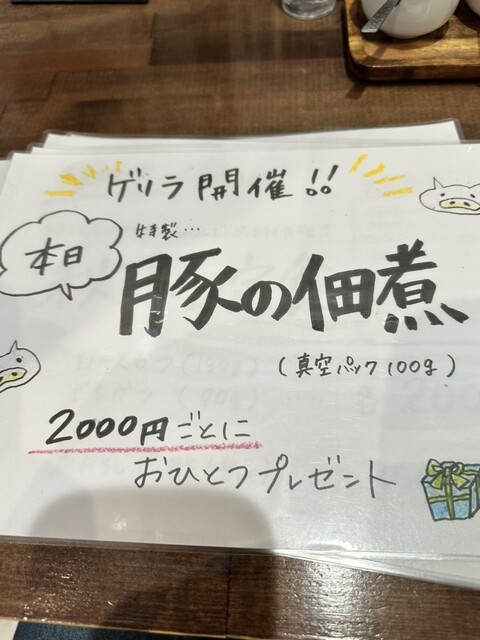 ゲリラ開催!!
本日
特製…
豚の佃煮
(真空パック100g)
2000円ごとに
おひとつプレゼント